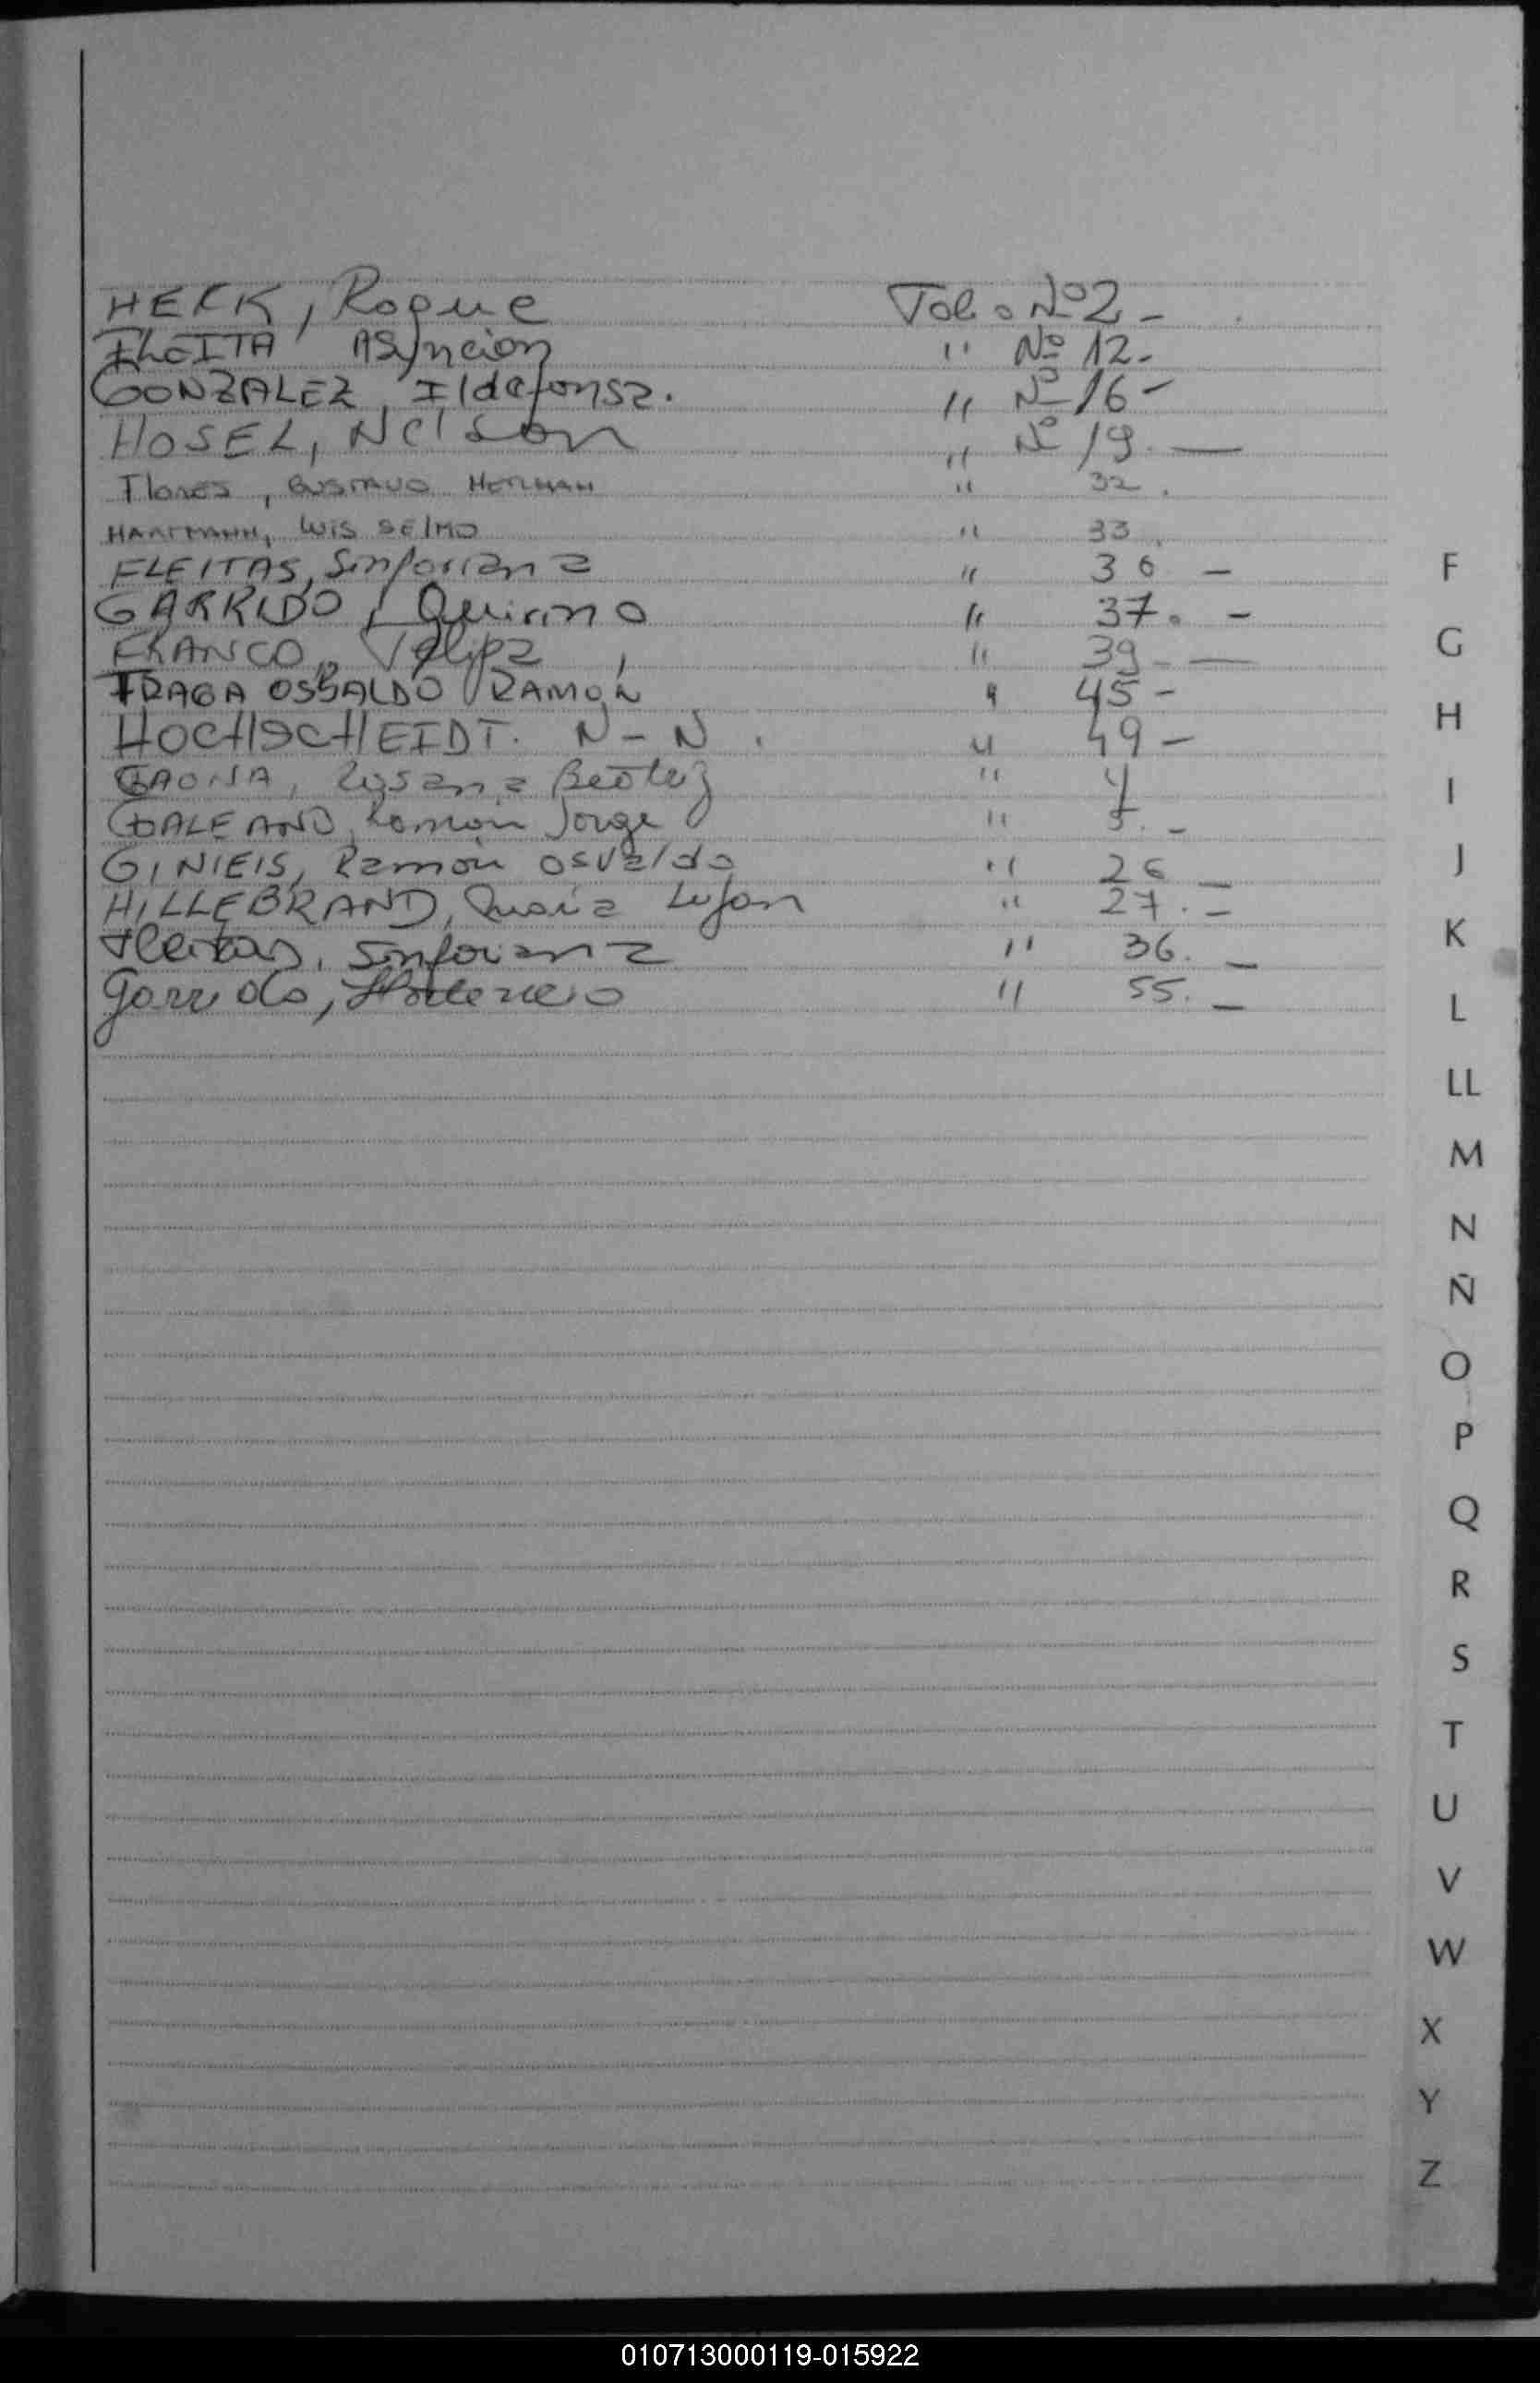 HERK, Roque Folio Nº 2 -
FLEITA ASuncion " Nº 12 -
GONZALEZ, Ildefonsa. " Nº 16 -
HOSEL, Nelson " Nº 19. —
Flores, GUSTAVO HERNAN " 32.
HARTMANN, LUIS SELMO " 33.
FLEITAS, Sinforiana " 36 -
GARRIDO, Quirino " 37. -
FRANCO, Felipa " 39 - —
FRAGA OSBALDO RAMON " 45 -
HOCHSCHEIDT. N - N. " 49 -
GAONA, Rosana Beatriz "
GALEANO, Ramón Jorge "
GINIEIS, Ramón Osvaldo " 26 -
HILLEBRAND, Maria Lujan " 27. -
Fleitas, Sinforiana " 36. -
Garrido, " 55. -
F
G
H
I
J
K
L
LL
M
N
Ñ
O
P
Q
R
S
T
U
V
W
X
Y
Z
010713000119-015922